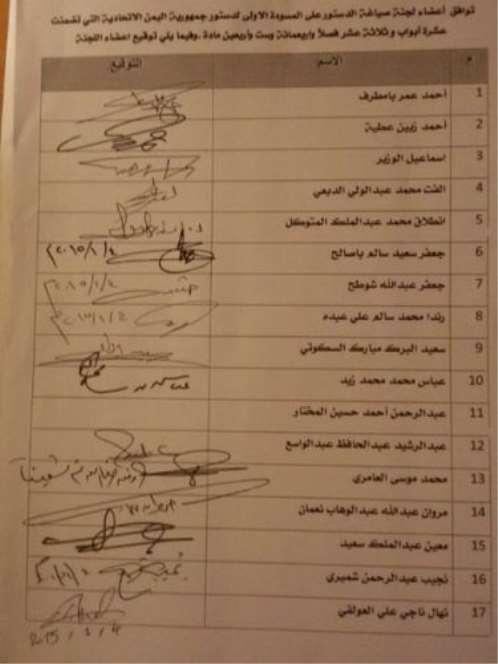 توافق أعضاء لجنة صياغة الدستور على المسودة الاولى لدستور جمهورية اليمن الاتحادية التي تضمنت
عشرة أبواب و ثلاثة عشر فصلاً واربعمائة وست وأربعين مادة .وفيما يلي توقيع اعضاء اللجنة
م الاسم التوقيع
1 أحمد عمر بامطرف
2 أحمد زبين عطية
3 اسماعيل الوزير
4 الفت محمد عبدالولي الدبعي
5 انطلاق محمد عبدالملك المتوكل
6 جعفر سعيد سالم باصالح ٢٠١٥/١/٤م
7 جعفر عبدالله شوطح
8 رندا محمد سالم علي عبده
9 سعيد البرك مبارك السكوتي
10 عباس محمد محمد زيد
11 عبدالرحمن أحمد حسين المختار
12 عبدالرشيد عبدالحافظ عبدالواسع
13 محمد موسى العامري
14 مروان عبدالله عبدالوهاب نعمان
15 معين عبدالملك سعيد
16 نجيب عبدالرحمن شميري
17 نهال ناجي علي العولقي
2015 / 1 / 4